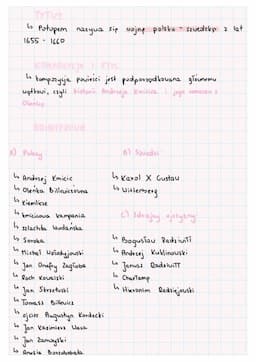 TYTUŁ
↳ Potopem nazywa się wojnę polsko-szwedzką z lat
1655 - 1660
KOMPOZYCJA I STYL
↳ kompozycja powieści jest podporządkowana głównemu
wątkowi, czyli historii Andrzeja Kmicica i jego romansu z
Oleńką
BOHATEROWIE
A) Polacy
↳ Andrzej Kmicic
↳ Oleńka Billewiczówna
↳ Kiemlicze
↳ kmicicowa kompania
↳ szlachta laudańska
↳ Soroka
↳ Michał Wołodyjowski
↳ Jan Onufry Zagłoba
↳ Roch Kowalski
↳ Jan Skrzetuski
↳ Tomasz Billewicz
↳ ojciec Augustyn Kordecki
↳ Jan Kazimierz Waza
↳ Jan Zamoyski
↳ Anusia Borzobohata
B) Szwedzi
↳ Karol X Gustaw
↳ Wittemberg
C) Zdrajcy ojczyzny
↳ Bogusław Radziwiłł
↳ Andrzej Kuklinowski
↳ Janusz Radziwiłł
↳ Charłamp
↳ Hieronim Radziejowski